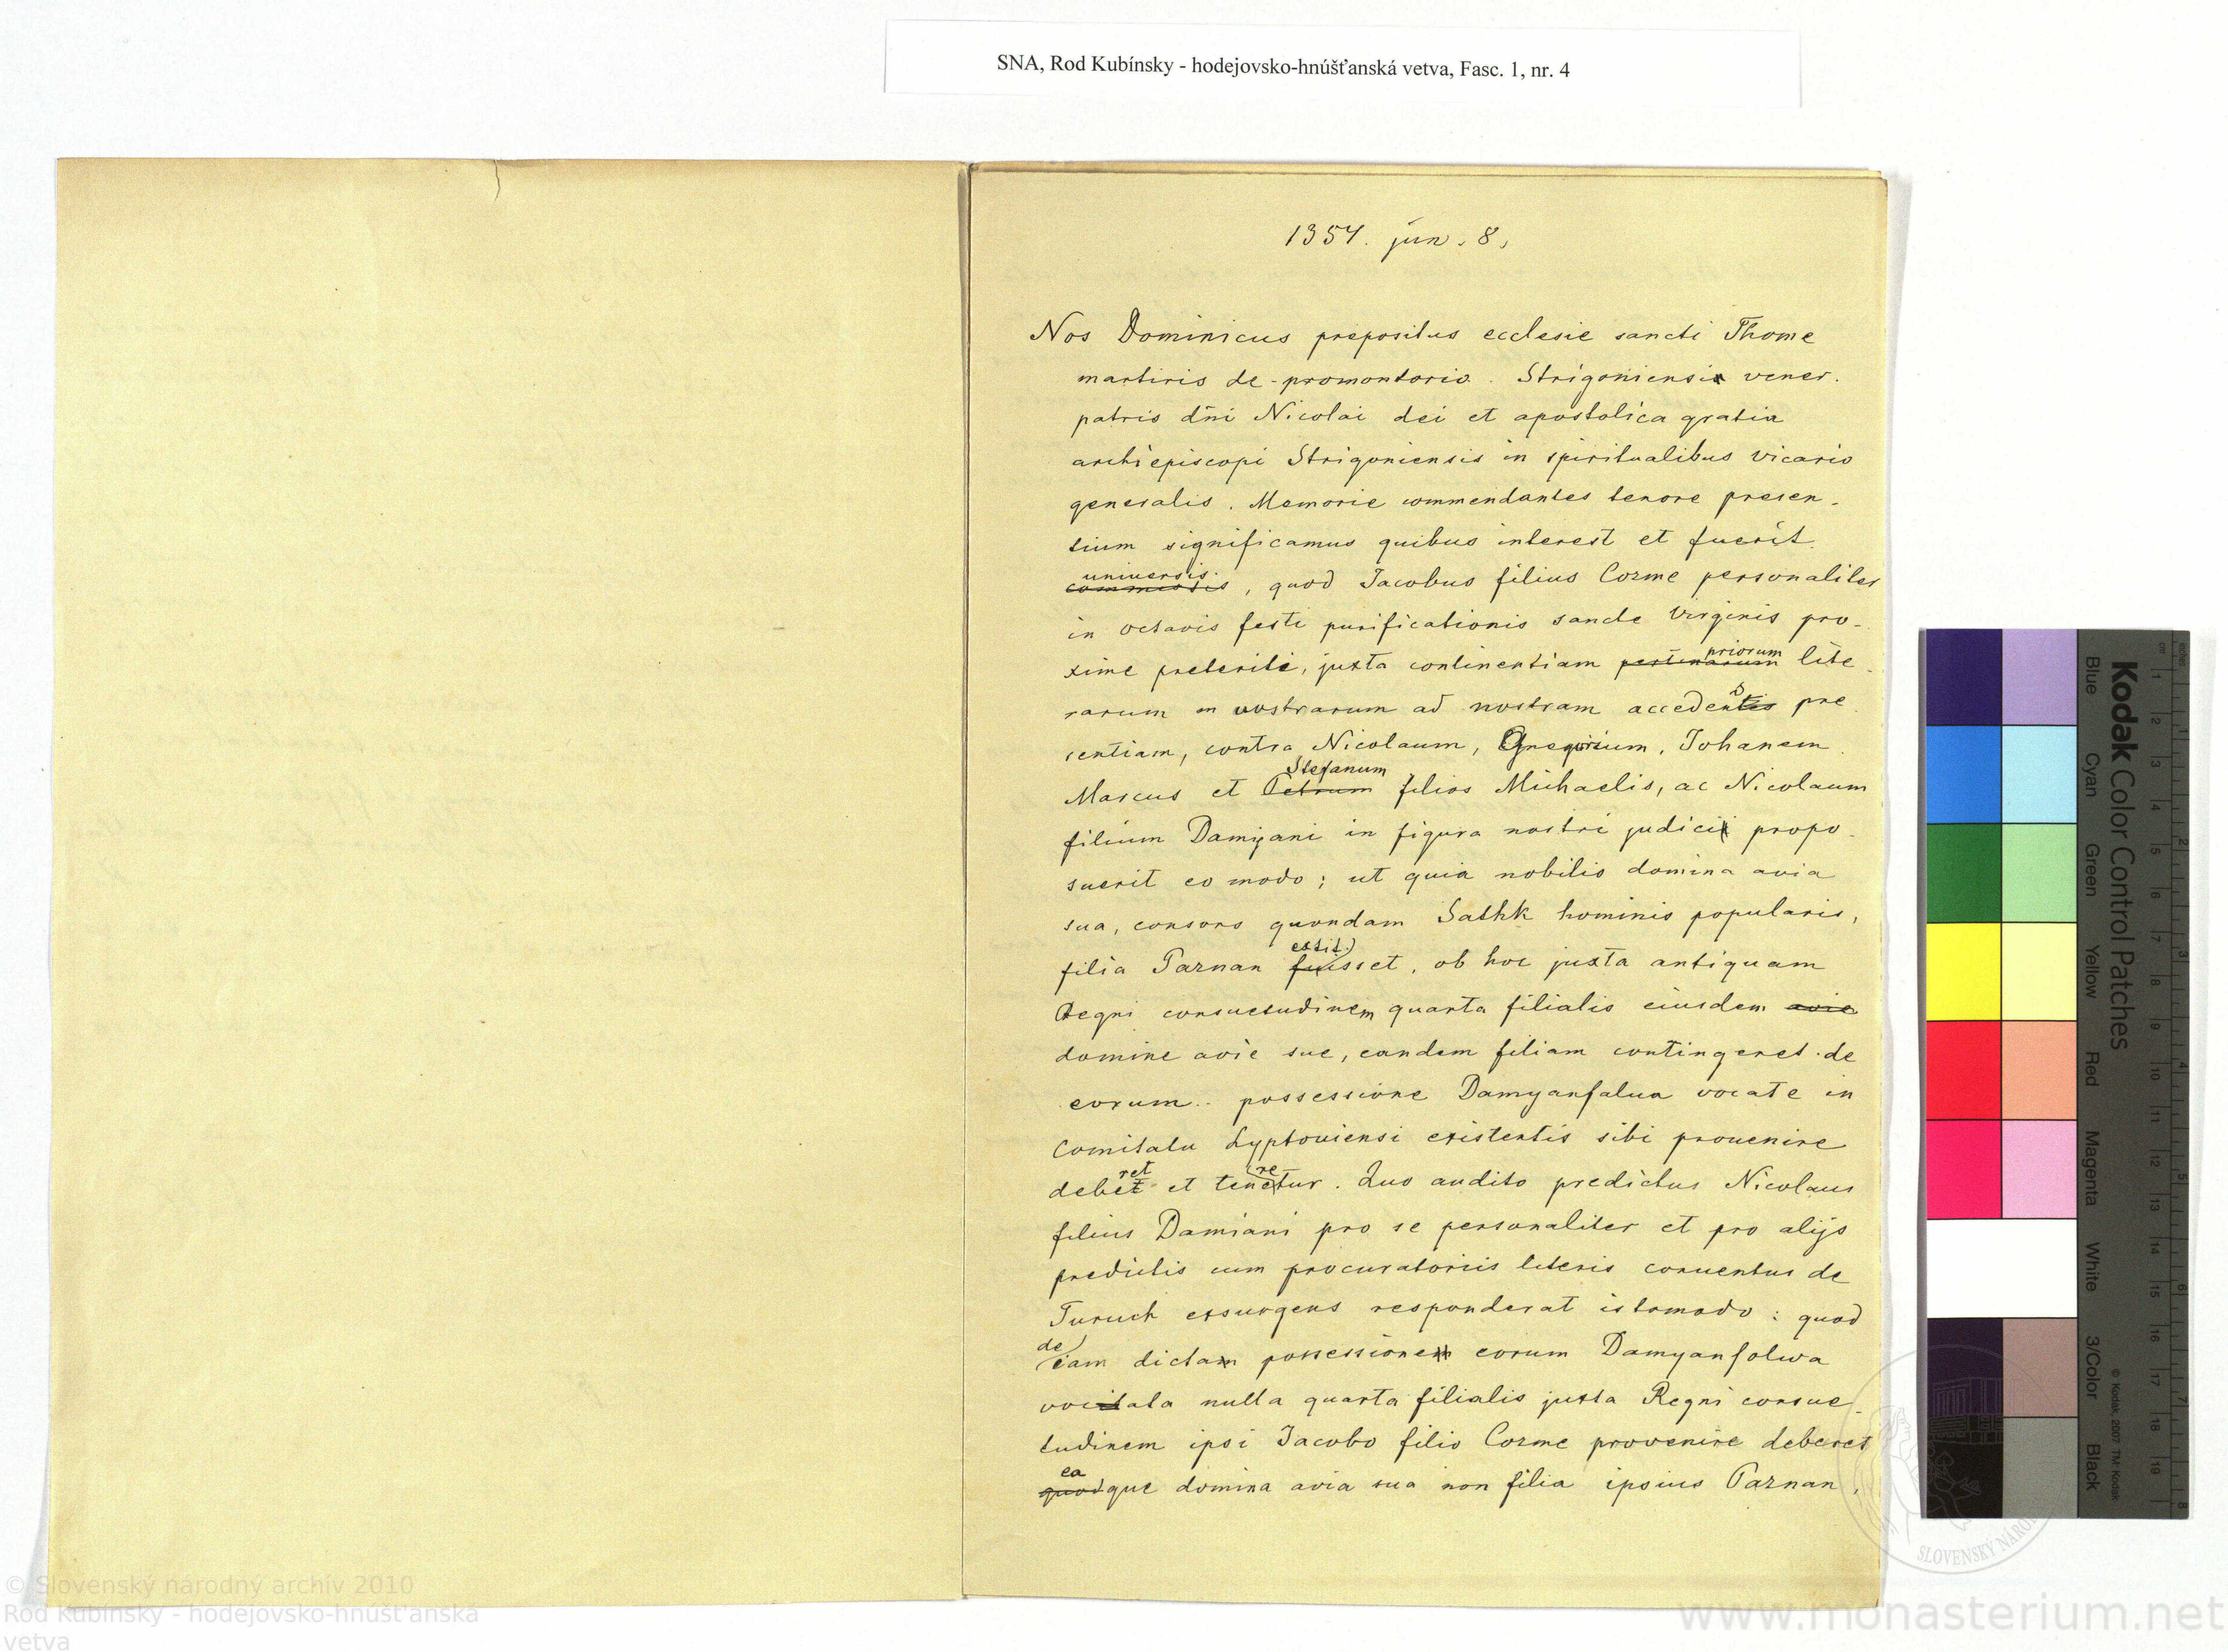 SNA, Rod Kubínsky - hodejovsko-hnúšťanská vetva, Fasc. 1, nr. 4
1354. jun. 8.
Nos Dominicus prepositus ecclesie sancti Thome
martiris de promontorio Strigoniensi vener.
patris dni Nicolai dei et apostolica gratia
archiepiscopi Strigoniensis in spiritualibus vicario
generalis. Memorie commendantes tenore presen-
tium significamus quibus interest et fuerit
universis, quod Jacobus filius Cozme personaliter
in octavis festi purificationis sancte Virginis pro-
xime preteriti, juxta continentiam priorum lite-
rarum nostrarum ad nostram accedens pre
sentiam, contra Nicolaum, Gregorium, Johanem
Marcus et Stefanum filios Michaelis, ac Nicolaum
filium Damyani in figura nostri judici propo-
suerit eo modo; ut quia nobilis domina avia
sua, consors quondam Sathk hominis popularis,
filia Paznan extitisset, ob hoc juxta antiquam
Regni consuetudinem quarta filialis eiusdem avie
domine avie sue, eandem filiam contingeret de
eorum possessione Damyanfalua vocate in
Comitatu Lyptouiensi existentis sibi prouenire
deberet et teneretur. Quo audito predictus Nicolaus
filius Damiani pro se personaliter et pro alijs
predictis cum procuratoriis literis conuentus de
Turuch exsurgens responderat istomodo: quod
de iam dicta possessione eorum Damyanfolwa
vocata nulla quarta filialis juxta Regni consue-
tudinem ipsi Jacobo filio Cozme provenire deberet
eaque domina avia sua non filia ipsius Paznan,
Kodak Color Control Patches
Blue Cyan Green Yellow Red Magenta White 3/Color Black
© Kodak, 2007 TM: Kodak
© Slovenský národný archív 2010
Rod Kubínsky - hodejovsko-hnúšťanská
vetva
SLOVENSKÝ NÁROD
www.monasterium.net